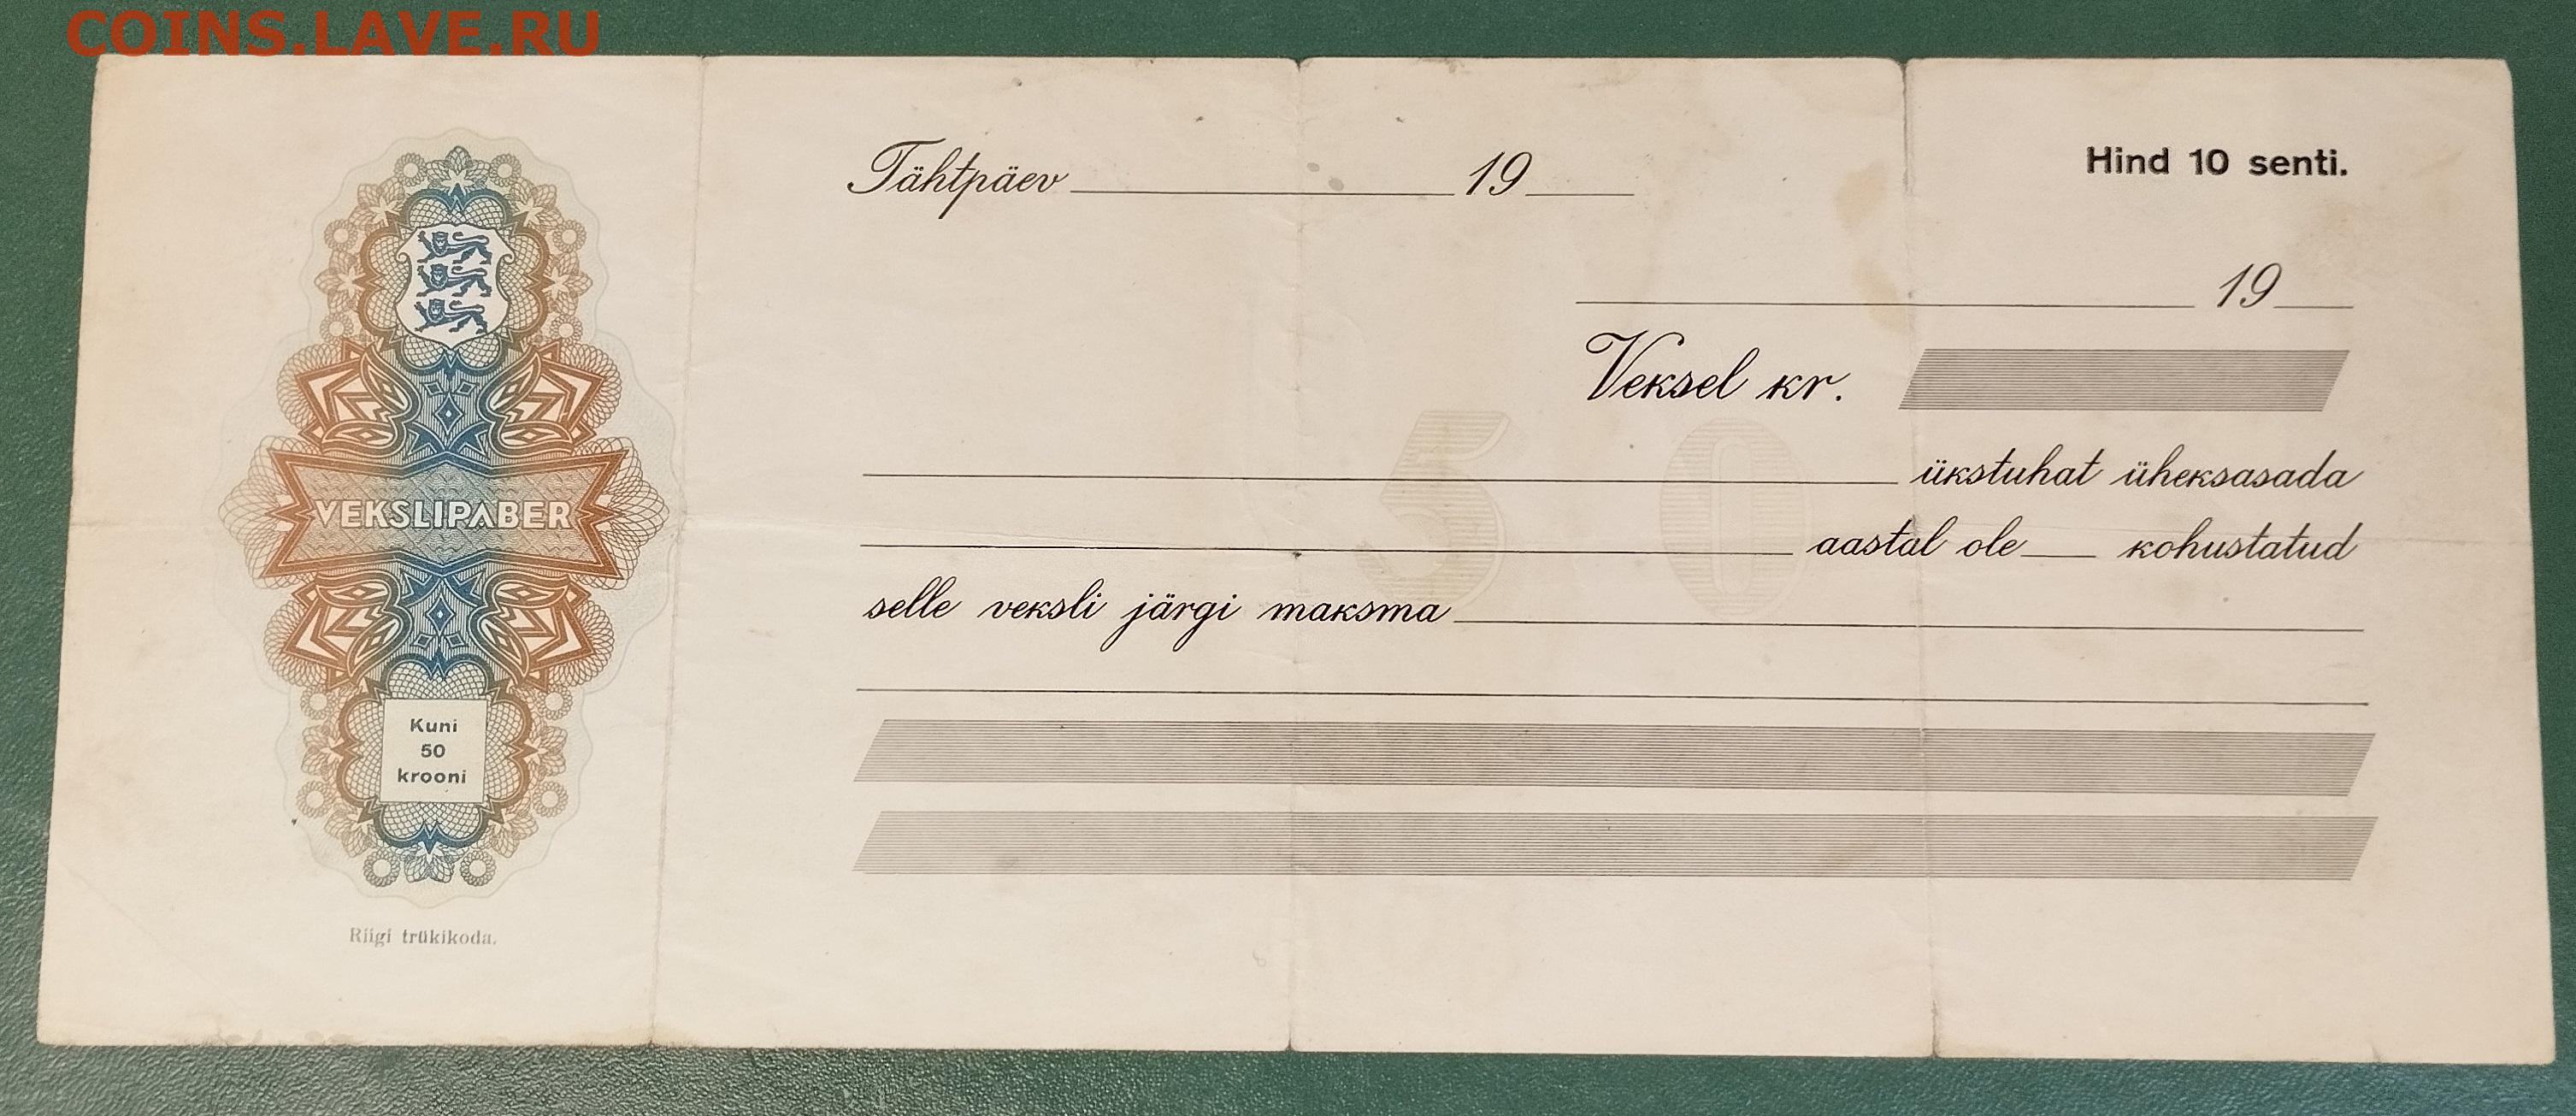 COINS.LAVE.RU
Tähtpäev 19
Hind 10 senti.
19
Veksel kr.
50
ükstuhat üheksasada
aastal ole kohustatud
selle veksli järgi maksma
VEKSLIPABER
Kuni
50
krooni
Riigi trükikoda.